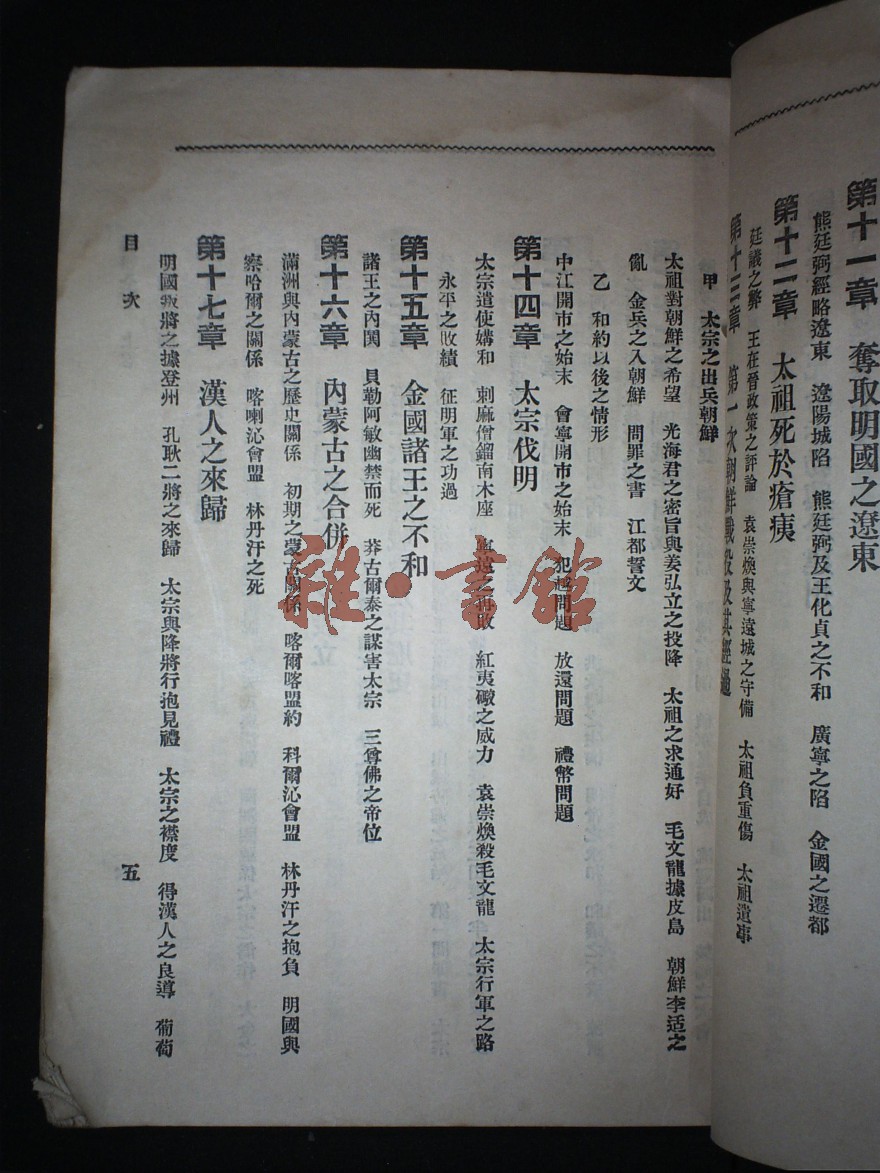 第十一章　奪取明國之遼東
熊廷弼經略遼東　遼陽城陷　熊廷弼及王化貞之不和　廣寧之陷　金國之遷都
第十二章　太祖死於瘡痍
廷議之弊　王在晉政策之評論　袁崇煥與寧遠城之守備　太祖負重傷　太祖遺事
第十三章　第一次朝鮮戰役及其經過
甲　太宗之出兵朝鮮
太祖對朝鮮之希望　光海君之密旨與姜弘立之投降　太祖之求通好　毛文龍據皮島　朝鮮李适之
亂　金兵之入朝鮮　問罪之書　江都誓文
乙　和約以後之情形
中江開市之始末　會寧開市之始末　犯越問題　放還問題　禮幣問題
第十四章　太宗伐明
太宗遣使媾和　刺麻僧鎦南木座　寧遠之再敗　紅夷礮之威力　袁崇煥殺毛文龍　太宗行軍之路
永平之敗績　征明軍之功過
第十五章　金國諸王之不和
諸王之內閧　貝勒阿敏幽禁而死　莽古爾泰之謀害太宗　三尊佛之帝位
第十六章　內蒙古之合併
滿洲與內蒙古之歷史關係　初期之蒙古關係　喀爾喀盟約　科爾沁會盟　林丹汗之抱負　明國與
察哈爾之關係　喀喇沁會盟　林丹汗之死
第十七章　漢人之來歸
明國叛將之據登州　孔耿二將之來歸　太宗與降將行抱見禮　太宗之襟度　得漢人之良導　葡萄
目次　五
雜·書館